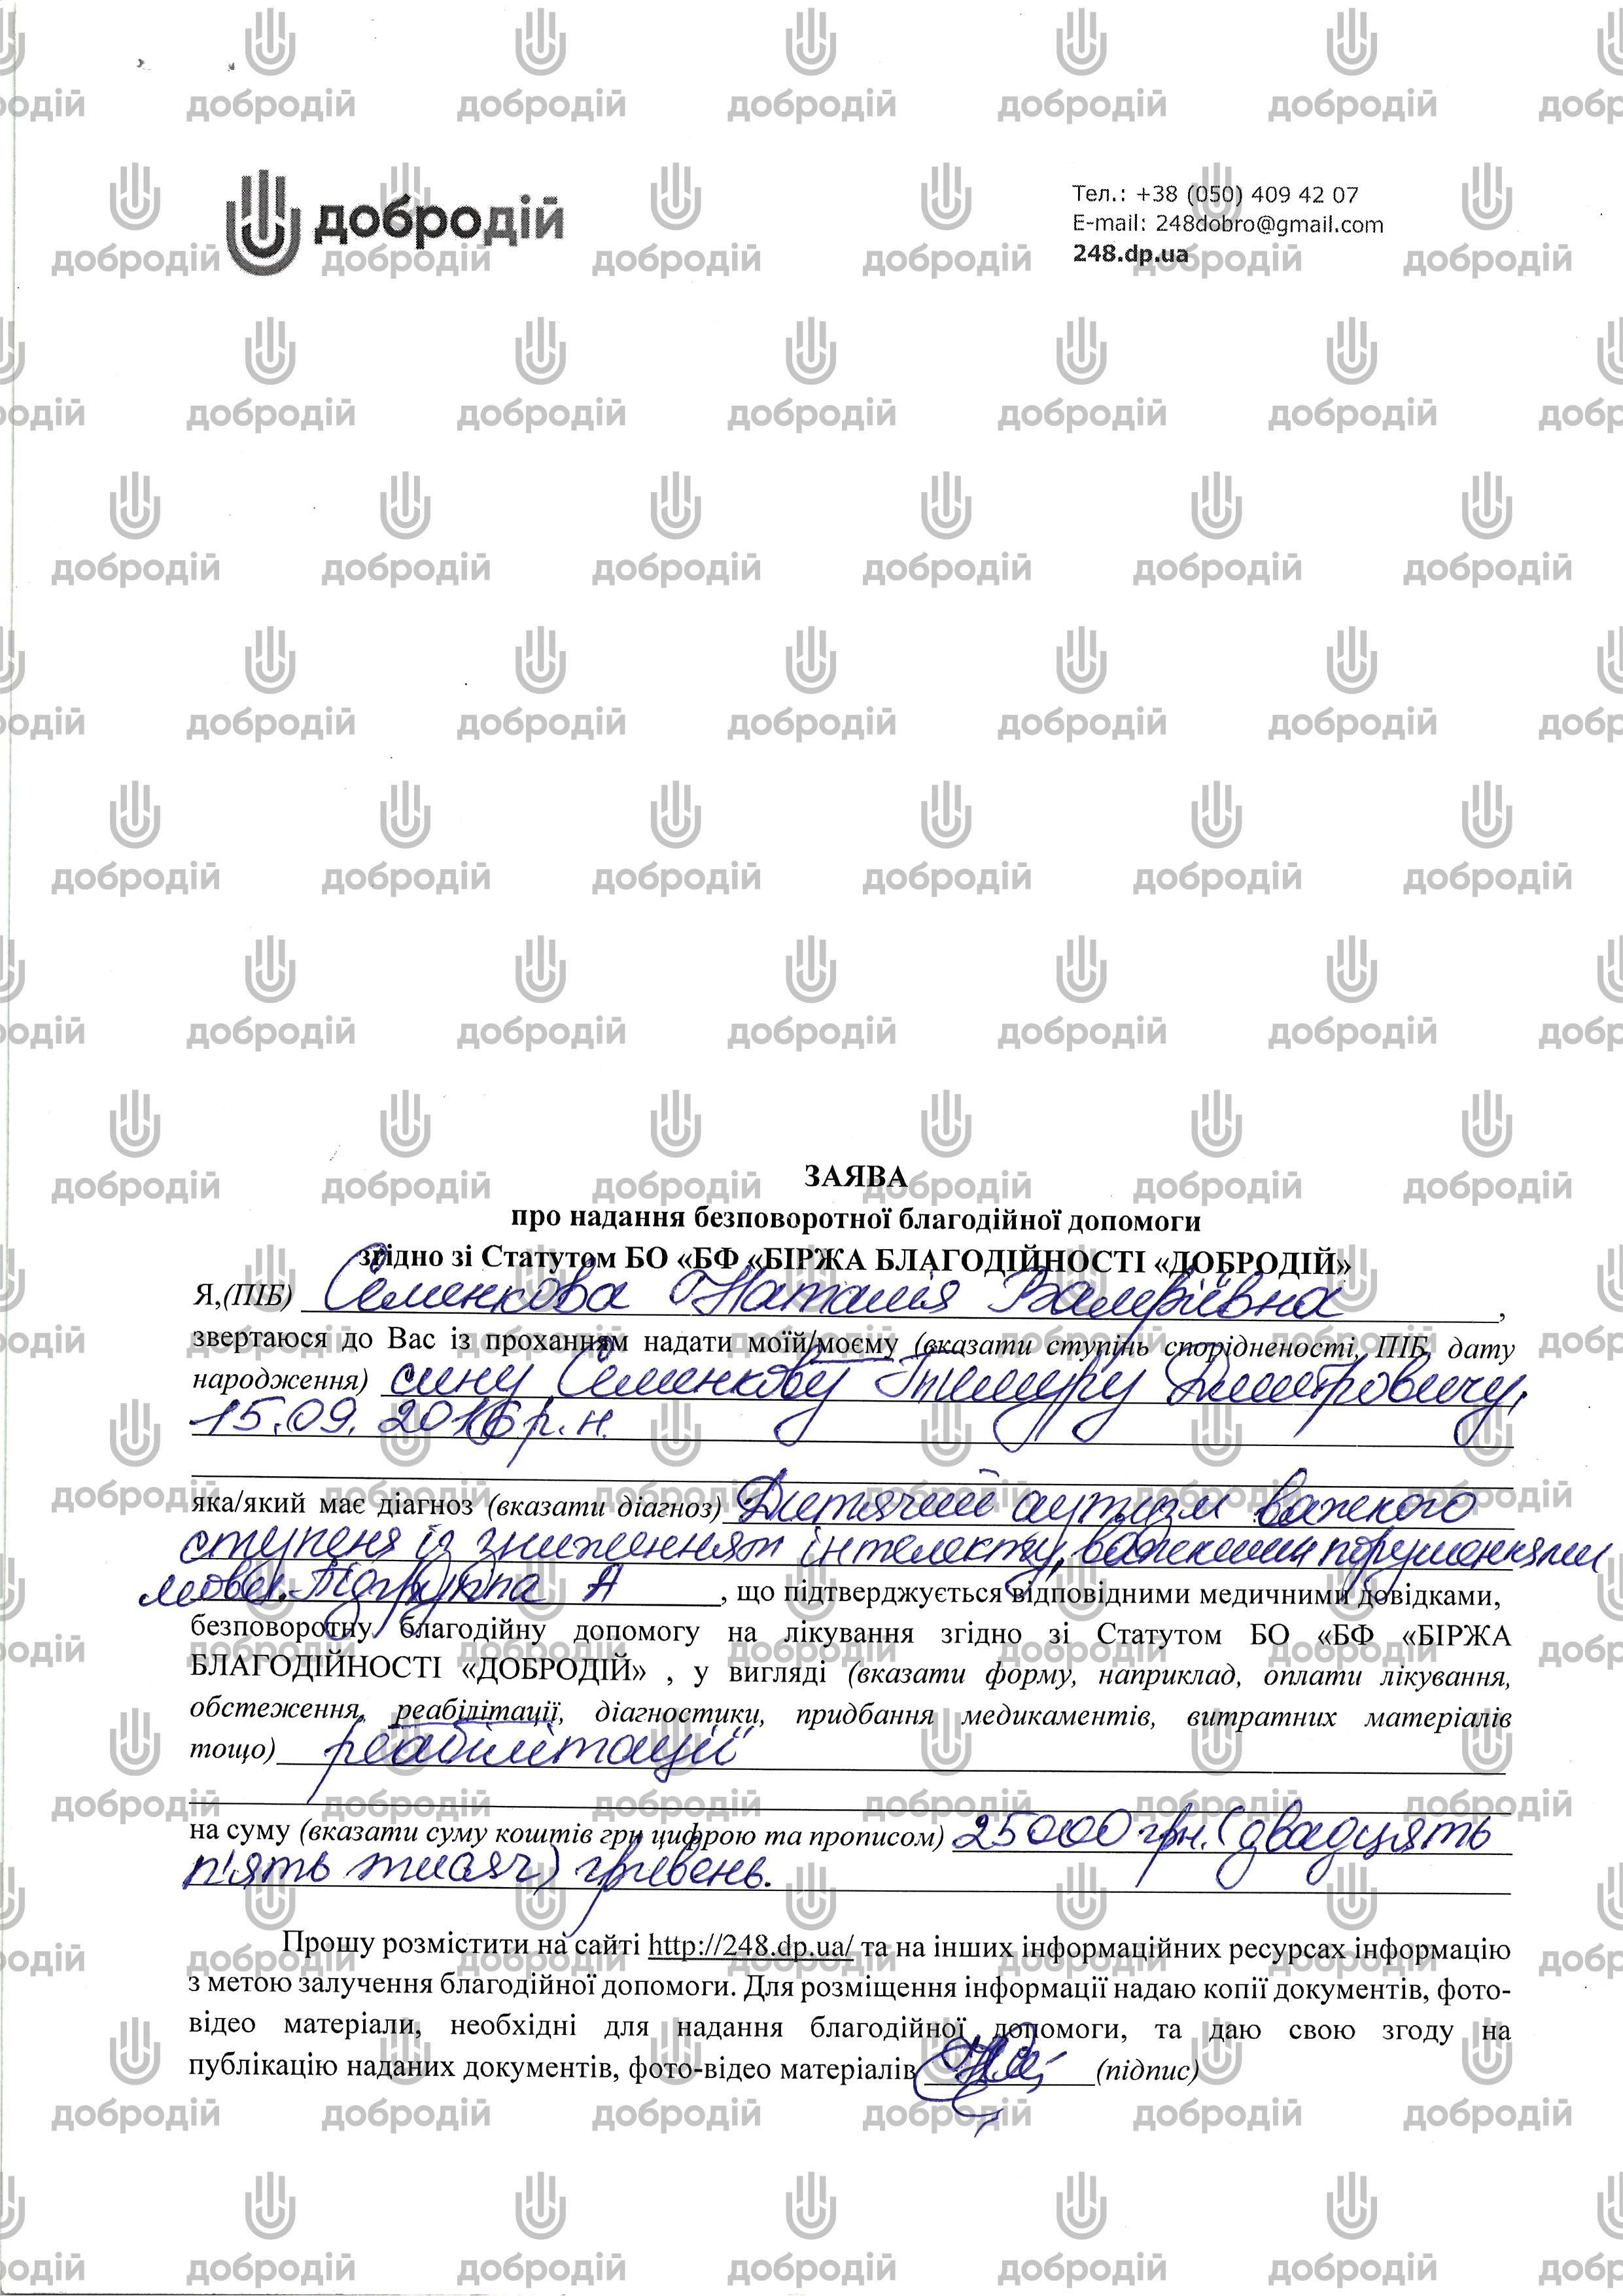 добродій
Тел.: +38 (050) 409 42 07
E-mail: 248dobro@gmail.com
248.dp.ua
ЗАЯВА
про надання безповоротної благодійної допомоги
згідно зі Статутом БО «БФ «БІРЖА БЛАГОДІЙНОСТІ «ДОБРОДІЙ»
Я,(ПІБ) Семенкова Наталія Валеріївна,
звертаюся до Вас із проханням надати моїй/моєму (вказати ступінь спорідненості, ПІБ, дату
народження) сину Семенкову Тимуру Дмитровичу,
15.09.2016 р.н.
яка/який має діагноз (вказати діагноз) Дитячий аутизм важкого
ступеня із зниженням інтелекту, важкими порушеннями
мови. Підгрупа А, що підтверджується відповідними медичними довідками,
безповоротну благодійну допомогу на лікування згідно зі Статутом БО «БФ «БІРЖА
БЛАГОДІЙНОСТІ «ДОБРОДІЙ» , у вигляді (вказати форму, наприклад, оплати лікування,
обстеження, реабілітації, діагностики, придбання медикаментів, витратних матеріалів
тощо) реабілітації
на суму (вказати суму коштів грн цифрою та прописом) 25000 грн. (двадцять
п'ять тисяч) гривень.
Прошу розмістити на сайті http://248.dp.ua/ та на інших інформаційних ресурсах інформацію
з метою залучення благодійної допомоги. Для розміщення інформації надаю копії документів, фото-
відео матеріали, необхідні для надання благодійної допомоги, та даю свою згоду на
публікацію наданих документів, фото-відео матеріалів (підпис)